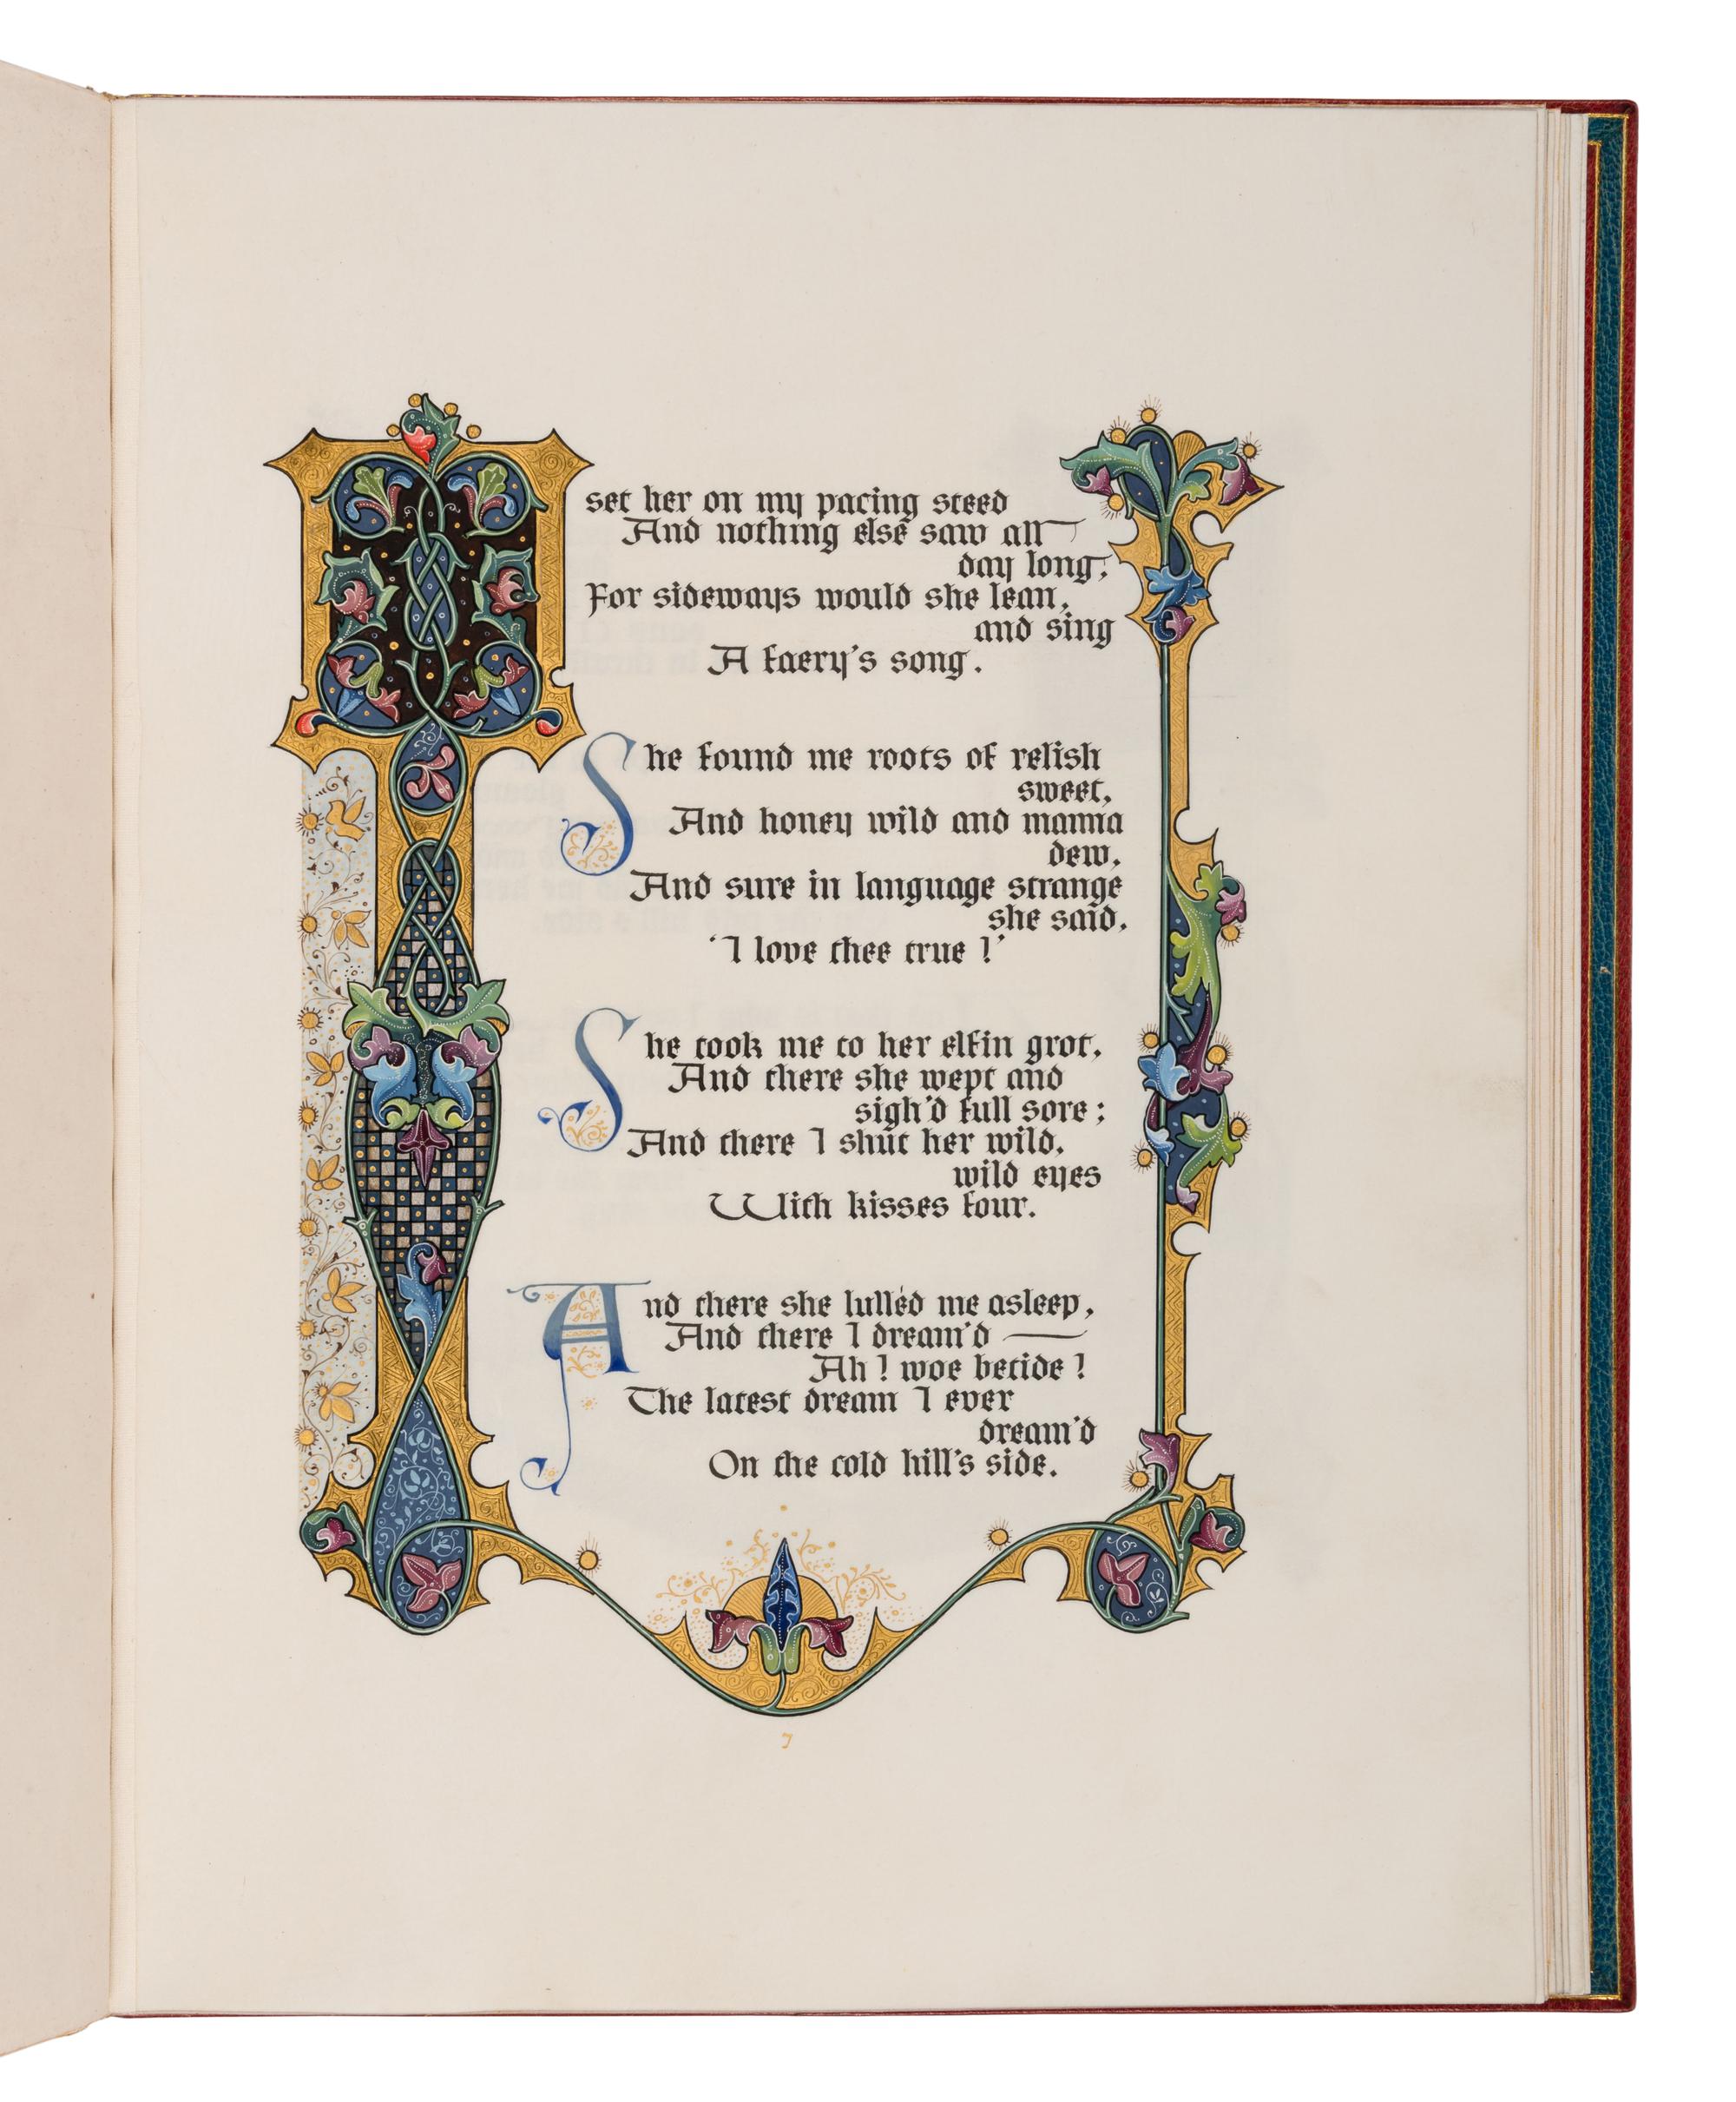 I set her on my pacing steed
And nothing else saw all
day long,
For sideways would she lean,
and sing
A faery's song.
She found me roots of relish
sweet,
And honey wild and manna
dew,
And sure in language strange
she said,
'I love thee true!'
She took me to her elfin grot,
And there she wept and
sigh'd full sore;
And there I shut her wild,
wild eyes
With kisses four.
And there she lulléd me asleep,
And there I dream'd —
Ah! woe betide!
The latest dream I ever
dream'd
On the cold hill's side.
7